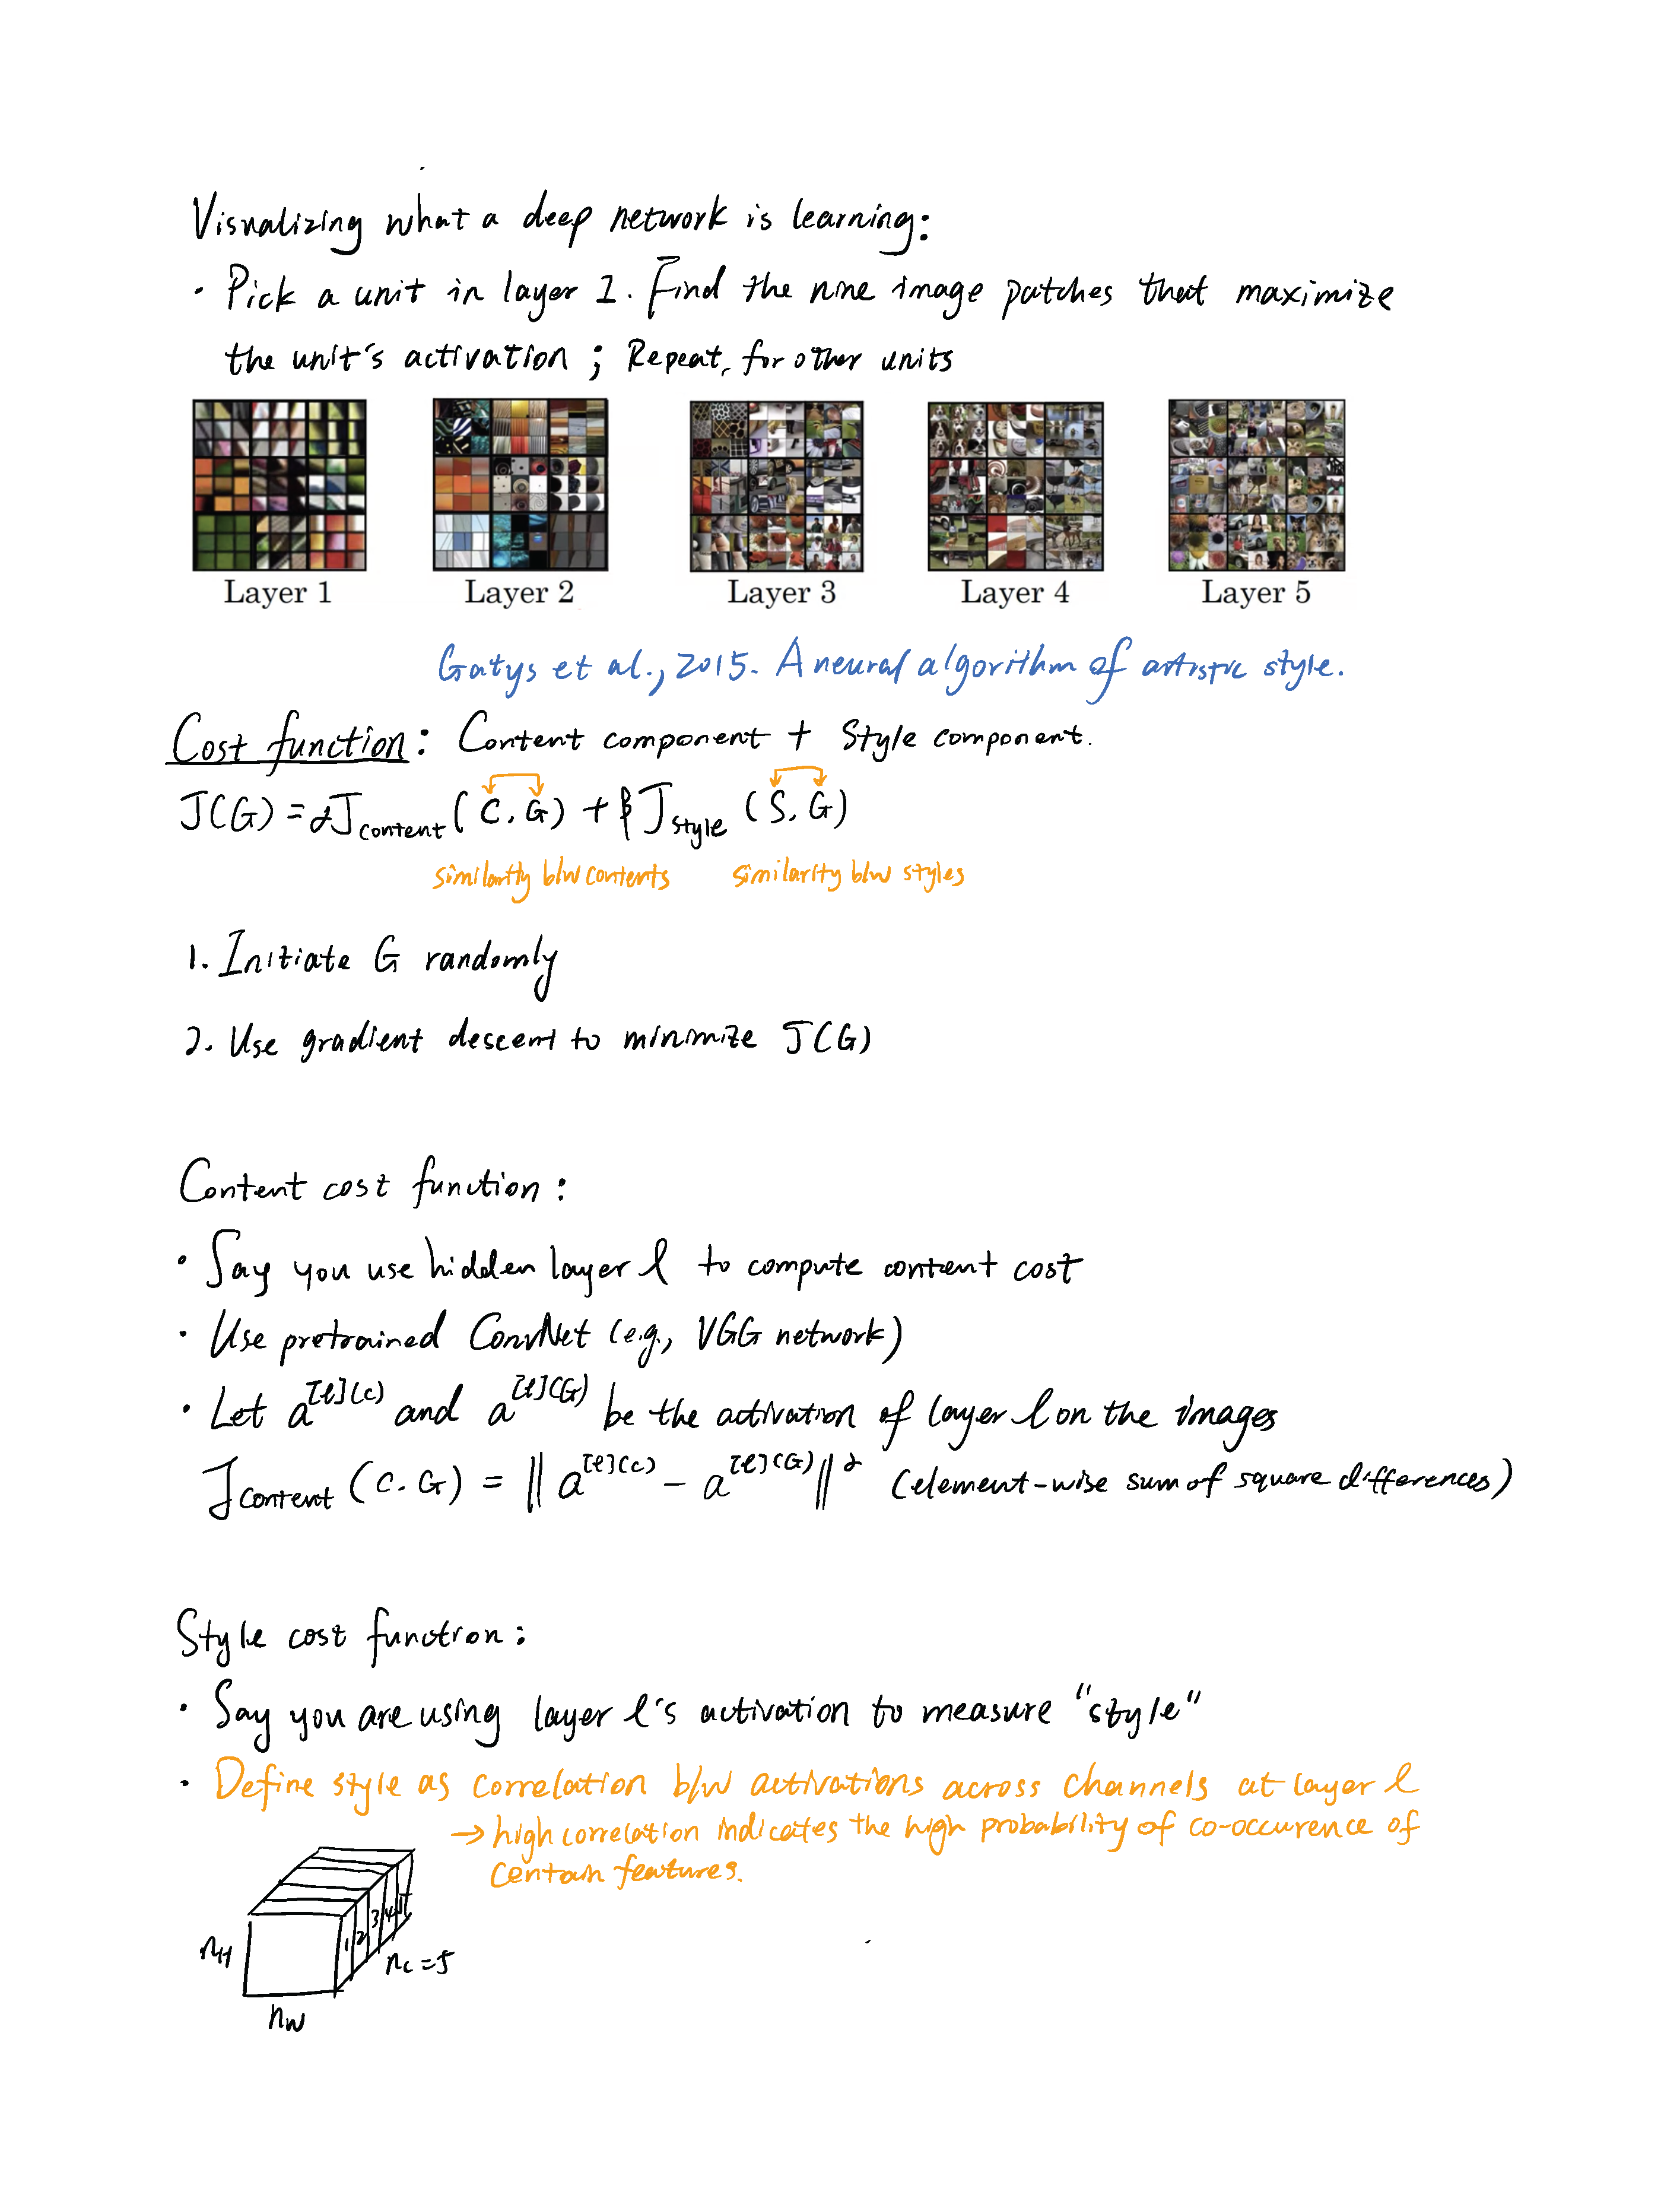 Visualizing what a deep network is learning:
· Pick a unit in layer 1. Find the nine image patches that maximize
the unit's activation ; Repeat for other units
Layer 1 Layer 2 Layer 3 Layer 4 Layer 5
Gatys et al., 2015. A neural algorithm of artistic style.
Cost function: Content component + Style component.
J(G) = αJ_content (C, G) + β J_style (S, G)
similarity b/w contents similarity b/w styles
1. Initiate G randomly
2. Use gradient descent to minimize J(G)
Content cost function:
· Say you use hidden layer l to compute content cost
· Use pretrained ConvNet (e.g., VGG network)
· Let a^[l](C) and a^[l](G) be the activation of layer l on the images
J_content (C, G) = || a^[l](C) - a^[l](G) ||² (element-wise sum of square differences)
Style cost function:
· Say you are using layer l's activation to measure "style"
· Define style as correlation b/w activations across channels at layer l
→ high correlation indicates the high probability of co-occurence of
certain features.
1 2 3 4 5
n_H
n_C = 5
n_W